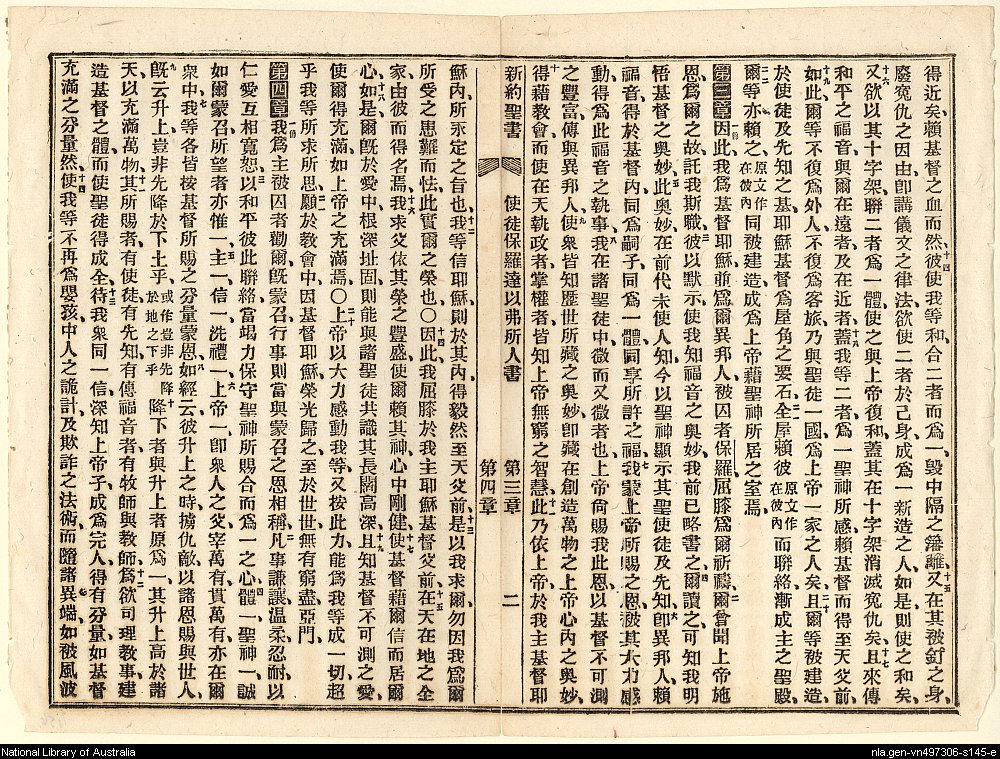 得近矣、賴基督之血而然、十四彼使我等和合二者而爲一、毀中隔之藩籬、十五又在其被釘之身、
廢寃仇之因由、卽講儀文之律法、欲使二者於己身成爲一新造之人、如是則使之和矣、
十六又欲以其十字架聯二者爲一體、使之與上帝復和、蓋其在十字架消滅寃仇矣、十七且來傳
和平之福音與爾在遠者及在近者、十八蓋我等二者爲一聖神所感、賴基督而得至天父前、
十九如此爾等不復爲外人、不復爲客旅、乃與聖徒一國、爲上帝一家之人矣、二十且爾等被建造
於使徒及先知之基、耶穌基督爲屋角之要石、二一全屋賴彼原文作在彼內而聯絡、漸成主之聖殿、
二二爾等亦賴之原文作在彼內同被建造、成爲上帝藉聖神所居之室焉、
第三章一節因此我爲基督耶穌並爲爾異邦人被囚者保羅、屈膝爲爾祈禱、二爾曾聞上帝施
恩爲爾之故、託我斯職、三彼以默示使我知福音之奧妙、我前已略書之、四爾讀之可知我明
悟基督之奧妙、五此奧妙在前代未使人知、今以聖神顯示其聖使徒及先知、六卽異邦人賴
福音得於基督內同爲嗣子、同爲一體、同享所許之福、七我蒙上帝所賜之恩、被其大力感
動、得爲此福音之執事、八我在諸聖徒中微而又微者也、上帝尙賜我此恩、以基督不可測
之豐富、傳與異邦人、九使衆皆知歷世所藏之奧妙、卽藏在創造萬物之上帝心內之奧妙、
十得藉教會而使在天執政者掌權者、皆知上帝無窮之智慧、十一此乃依上帝於我主基督耶
新約聖書 使徒保羅達以弗所人書 第三章 第四章 二
穌內所永定之旨也、十二我等信耶穌、則於其內得毅然至天父前、十三是以我求爾勿因我爲爾
所受之患難而怯、此實爾之榮也、〇十四因此我屈膝於我主耶穌基督父前、十五在天在地之全
家、由彼而得名焉、十六我求父依其榮之豐盛、使爾賴其神、心中剛健、十七使基督藉爾信而居爾
心、如是爾旣於愛中根深址固、十八則能與諸聖徒共識其長闊高深、十九且知基督不可測之愛、
使爾得充滿、如上帝之充滿焉、〇二十上帝以大力感動我等、又按此力能爲我等成一切超
乎我等所求所思、二一願於教會中、因基督耶穌、榮光歸之、至於世世無有窮盡、亞門、
第四章一節我爲主被囚者勸爾、旣蒙召、行事則當與蒙召之恩相稱、二凡事謙讓溫柔忍耐、以
仁愛互相寬恕、三以和平彼此聯絡、當竭力保守聖神所賜合而爲一之心、四體一、聖神一、誠
如爾蒙召所望者亦惟一、五主一、信一、洗禮一、六上帝一、卽衆人之父、宰萬有、貫萬有、亦在爾
衆中、七我等各皆按基督所賜之分量蒙恩、八如經云、彼升上之時、擄仇敵、以諸恩賜與世人、
九旣云升上、豈非先降於下土乎、或作豈非先降於地之下乎十降下者、與升上者原爲一、其升上高於諸
天、以充滿萬物、十一其所賜者有使徒、有先知、有傳福音者、有牧師與教師、十二爲欲司理教事、建
造基督之體、而使聖徒得成全、十三待我衆同一信、深知上帝子、成爲完人、得有分量、如基督
充滿之分量然、十四使我等不再爲嬰孩、中人之詭計及欺詐之法術、而隨諸異端、如被風波
National Library of Australia
nla.gen-vn497306-s145-e